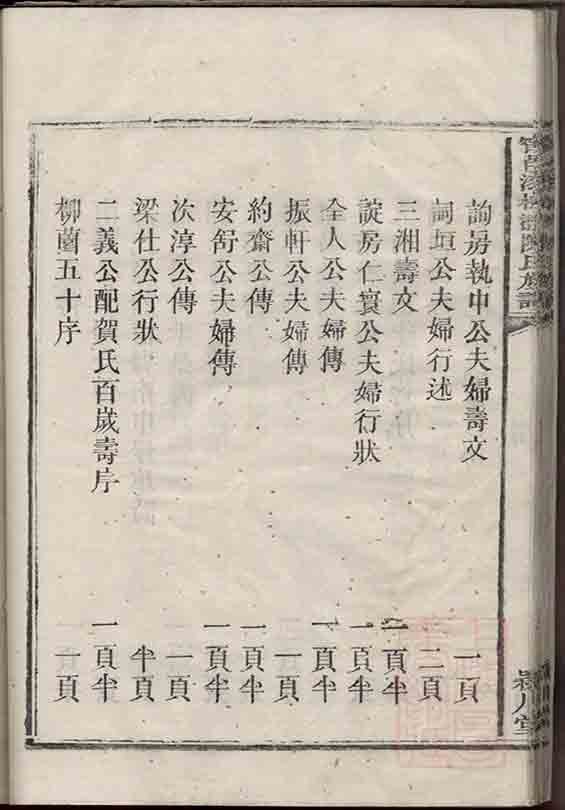 諭房執中公夫婦壽文 一頁
詞垣公夫婦行述 二頁
三湘壽文 一頁半
諚房仁寰公夫婦行狀 一頁半
全人公夫婦傳 一頁半
振軒公夫婦傳 一頁
約齋公傳 一頁半
安舒公夫婦傳 一頁半
次淳公傳 一頁
梁仕公行狀 半頁
二義公配賀氏百歲壽序 一頁半
柳薗五十序 一頁
陳氏族譜
潁川堂